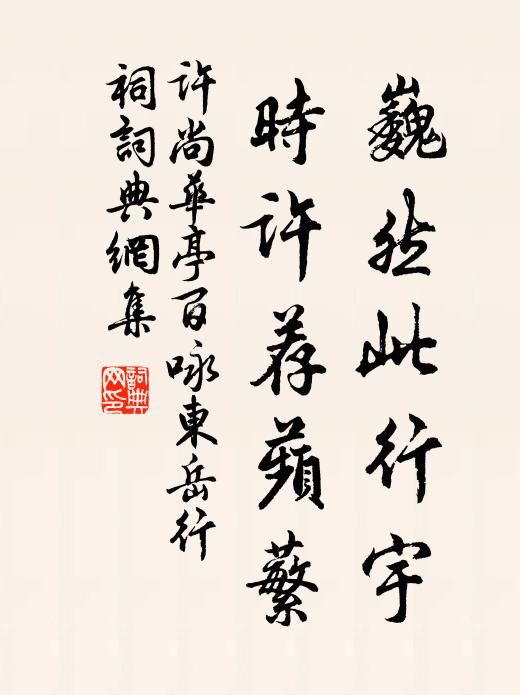 巍然此行宇
時許荐蘋蘩
許尚華亭百咏東岳行
祠詞典網集
詞典网印